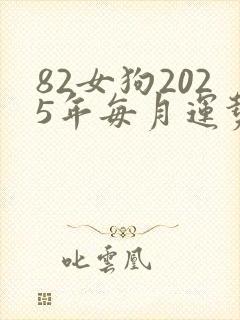 82女狗202
5年每月運勢
叱雲凰